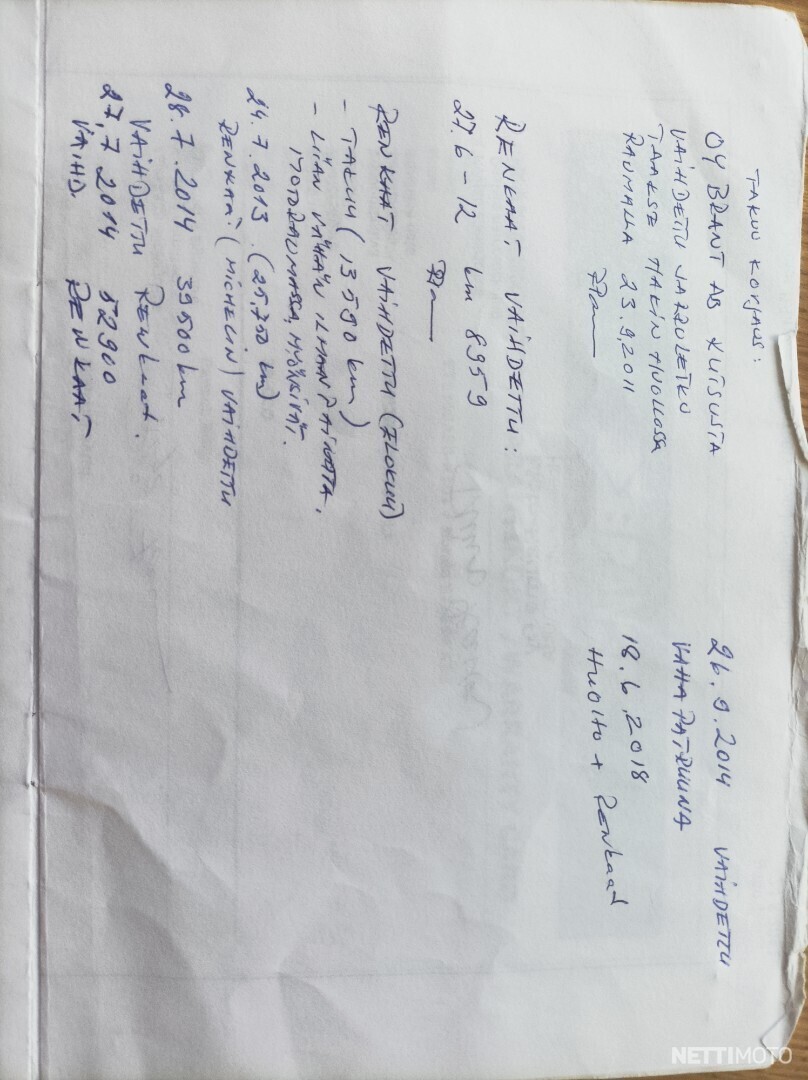 TAKUU KORJAUS:
OY BRANT AB KUTSUSTA
VAIHDETTU JARRULETKU
TAAKSE MAKIN HUOLLOSSA
RAUMALLA 23.9.2011
RENKAAT VAIHDETTU:
27.6-12 km 8959
RENKAAT VAIHDETTU (ELOKUU)
- TAKUU (13590 km)
- LIIAN VÄHÄN ILMANPAINETTA,
MOTORAUMASSA, MYÖNSIVÄT.
24.7.2013. (25,750 km)
RENKAAT (MICHELIN) VAIHDETTU
28.7.2014 39500 km
VAIHDETTU RENKAAT.
27.7 2014 52900
VAIHD. RENKAAT
26.9.2014 VAIHDETTU
VAHAPATRUUNA
18.6.2018
HUOLTO + RENKAAT
NETTIMOTO